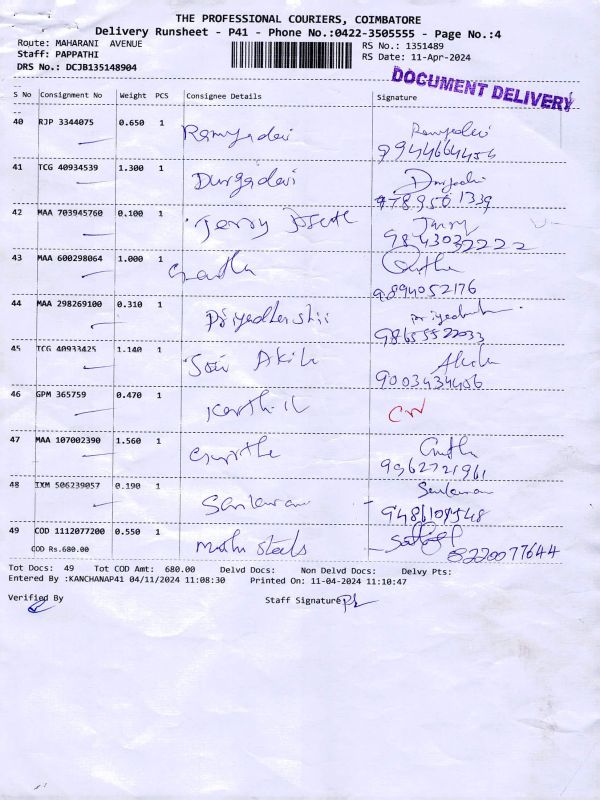 THE PROFESSIONAL COURIERS, COIMBATORE
Delivery Runsheet - P41 - Phone No.:0422-3505555 - Page No.:4
Route: MAHARANI AVENUE RS No.: 1351489
Staff: PAPPATHI RS Date: 11-Apr-2024
DRS No.: DCJB135148904
DOCUMENT DELIVERY
S No Consignment No Weight PCS Consignee Details Signature
40 RJP 3344075 0.650 1 Ramyadevi Ramyadevi
9944664456
41 TCG 40934539 1.300 1 Durgadevi Durgadevi
9789561339
42 MAA 703945760 0.100 1 Jerry Jerry
9843032222
43 MAA 600298064 1.000 1
9894052176
44 MAA 298269100 0.310 1 Priyadharshii
98655522033
45 TCG 40933425 1.140 1 Sai Akila Akila
9003434456
46 GPM 365759 0.470 1 Karthik
47 MAA 107002390 1.560 1
9962721961
48 IXM 506239057 0.190 1 Sankaran Sankaran
9486109548
49 COD 1112077200 0.550 1
COD Rs.680.00 8220077644
Tot Docs: 49 Tot COD Amt: 680.00 Delvd Docs: Non Delvd Docs: Delvy Pts:
Entered By :KANCHANAP41 04/11/2024 11:08:30 Printed On: 11-04-2024 11:10:47
Verified By Staff Signature